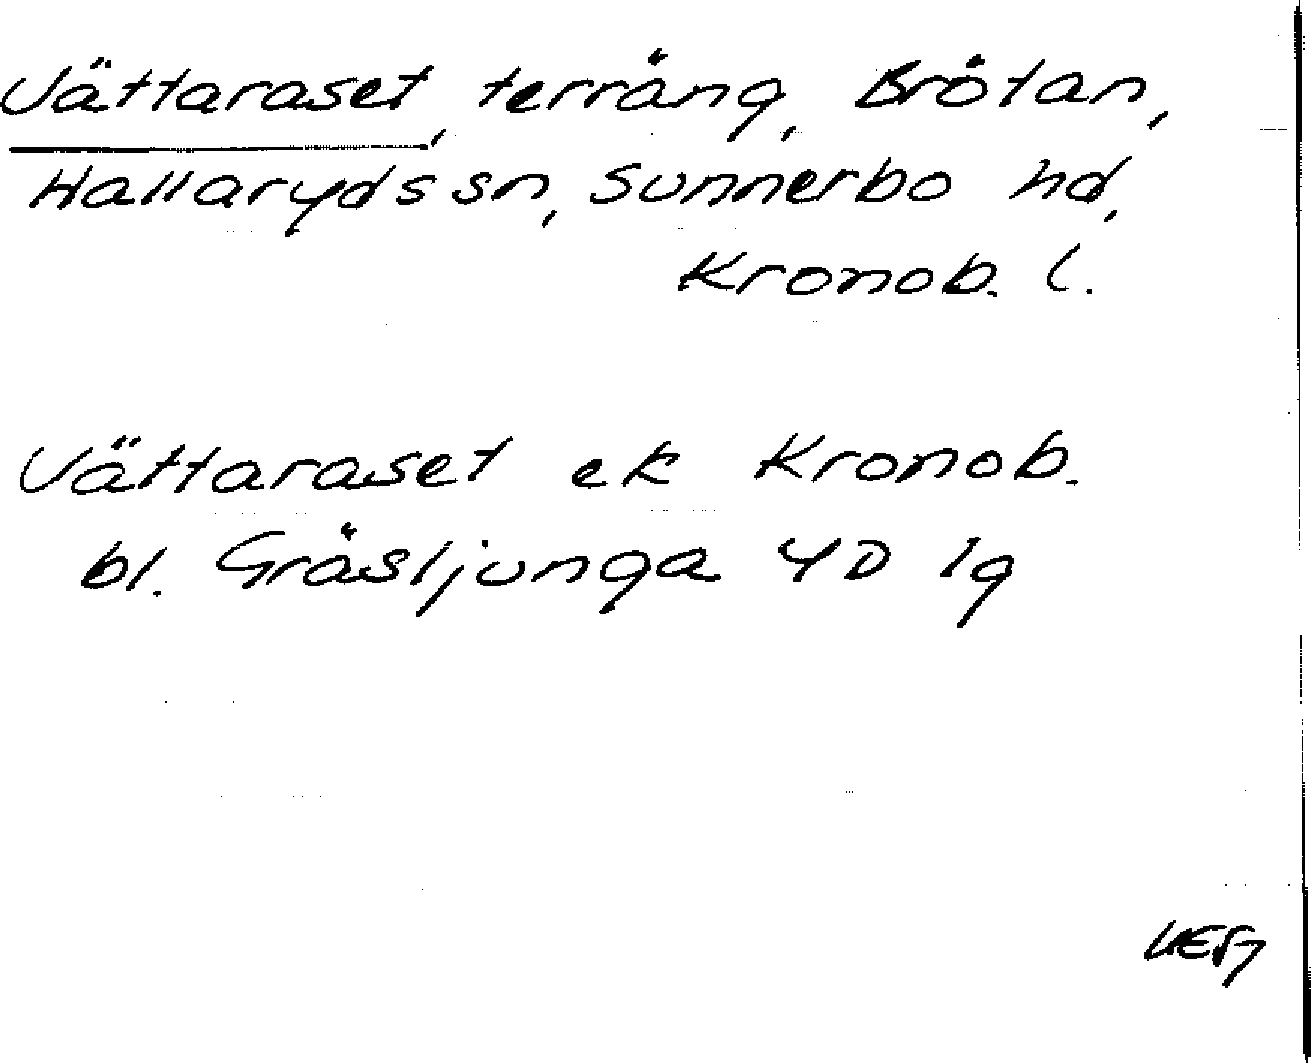 Vättaraset, terräng, Brötan,
Hallaryds sn, Sunnerbo hd,
Kronob. l.
Vättaraset ek Kronob.
bl. Gräsljunga 4D 1g